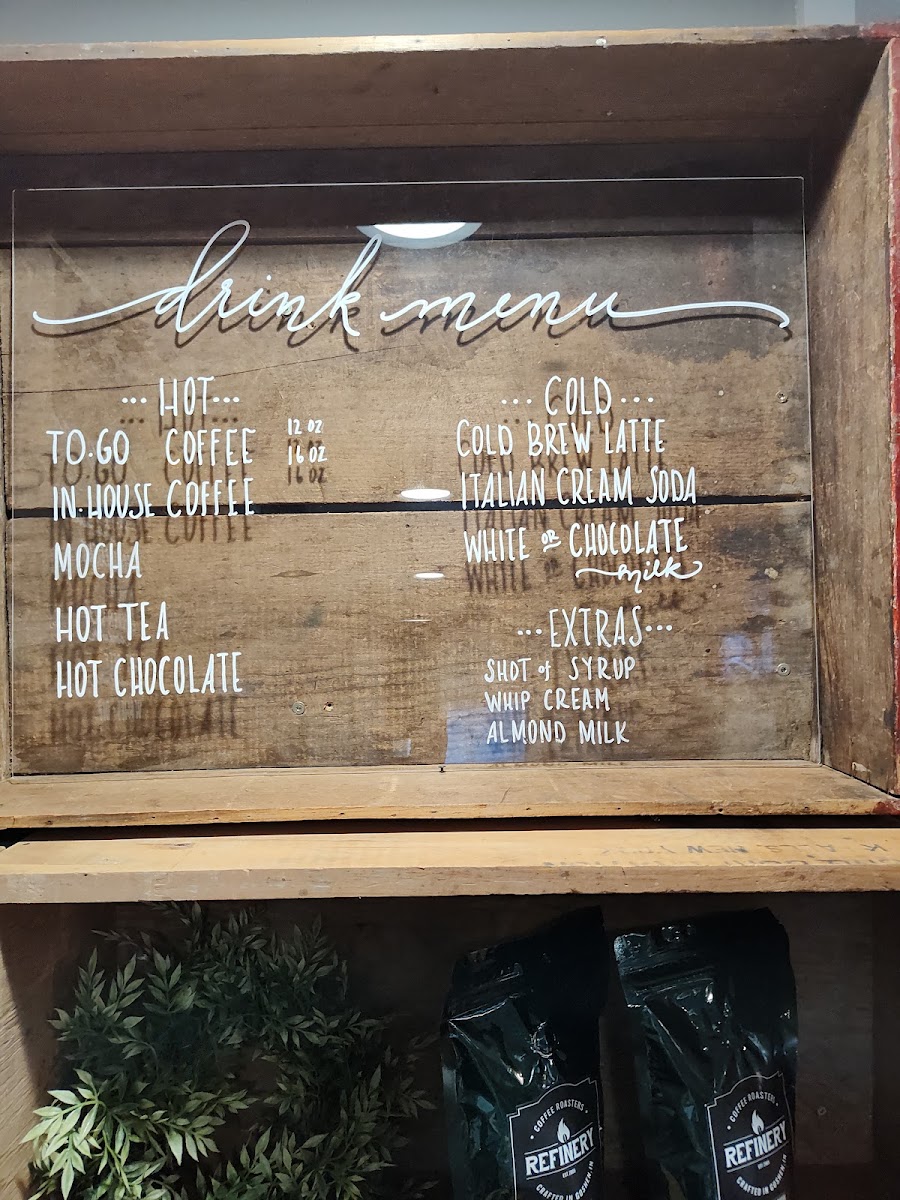 drink menu
... HOT...
TO-GO COFFEE 12 OZ
16 OZ
IN-HOUSE COFFEE
MOCHA
HOT TEA
HOT CHOCOLATE
... COLD ...
COLD BREW LATTE
ITALIAN CREAM SODA
WHITE OR CHOCOLATE
milk
...EXTRAS...
SHOT of SYRUP
WHIP CREAM
ALMOND MILK
• COFFEE ROASTERS •
REFINERY
CRAFTED IN GOSHEN, IN
• COFFEE ROASTERS •
REFINERY
CRAFTED IN GOSHEN, IN